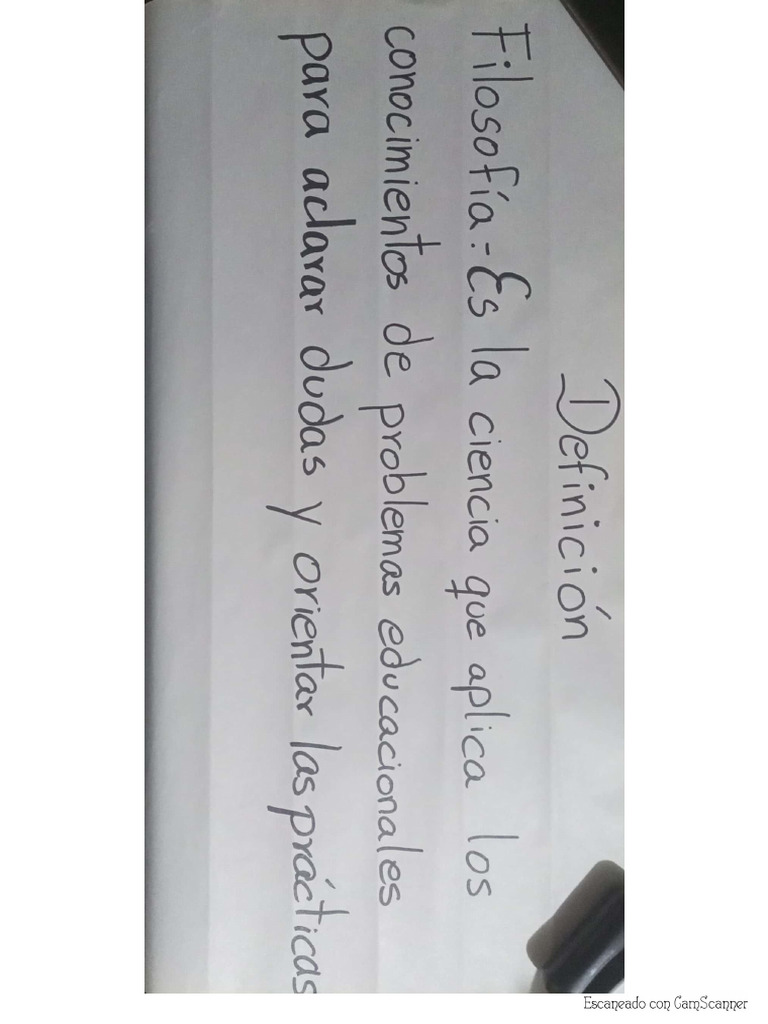 Definición
Filosofía:- Es la ciencia que aplica los
conocimientos de problemas educacionales
para aclarar dudas y orientar las prácticas
Escaneado con CamScanner